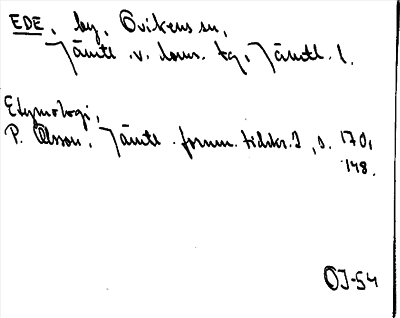 EDE, by, Ovikens sn,
Jämtl. v. doms. tg, Jämtl. l.
Etymologi,
P. Olsson, Jämtl. fornm. tidskr. 2, s. 170,
148.
OJ-54